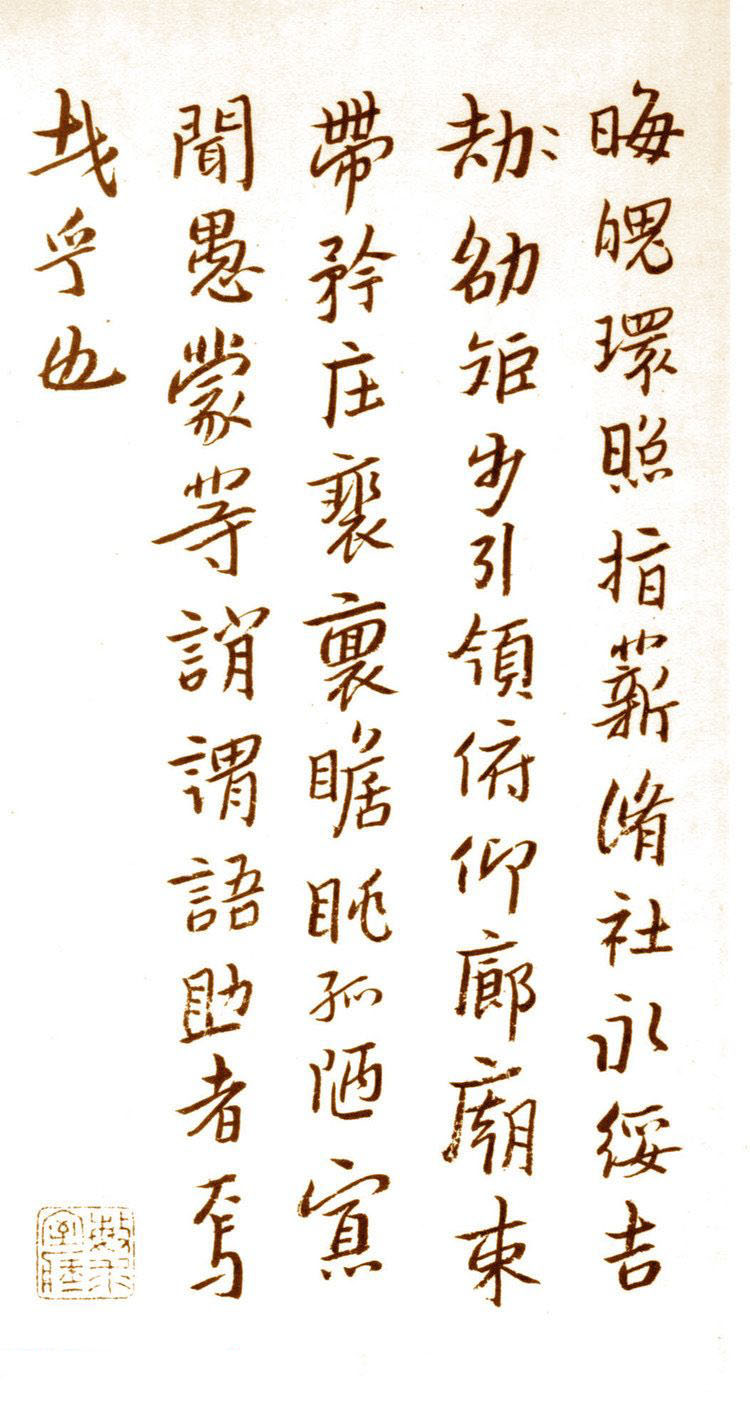 晦魄環照指薪脩社永綏吉
劫劭矩步引領俯仰廊廟束
帶矜庄裵褱瞻眺孤陋寡
聞愚蒙等誚謂語助者焉
哉乎也